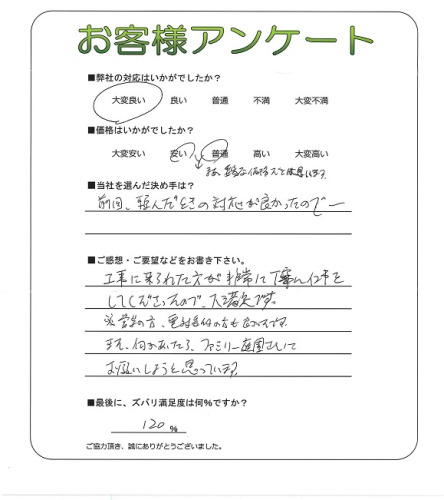 お客様アンケート
■弊社の対応はいかがでしたか?
大変良い 良い 普通 不満 大変不満
■価格はいかがでしたか?
大変安い 安い 普通 高い 大変高い
まあ、妥当な価格だとは思います。
■当社を選んだ決め手は?
前回、頼んだときの対応が良かったので
■ご感想・ご要望などをお書き下さい。
工事に来られた方が非常に丁寧な仕事を
してくださったので、大満足です。
営業の方、電話受付の方も良かったです。
また、何かあったら、ファミリー庭園さんに
お願いしようと思っています。
■最後に、ズバリ満足度は何%ですか?
120 %
ご協力頂き、誠にありがとうございました。